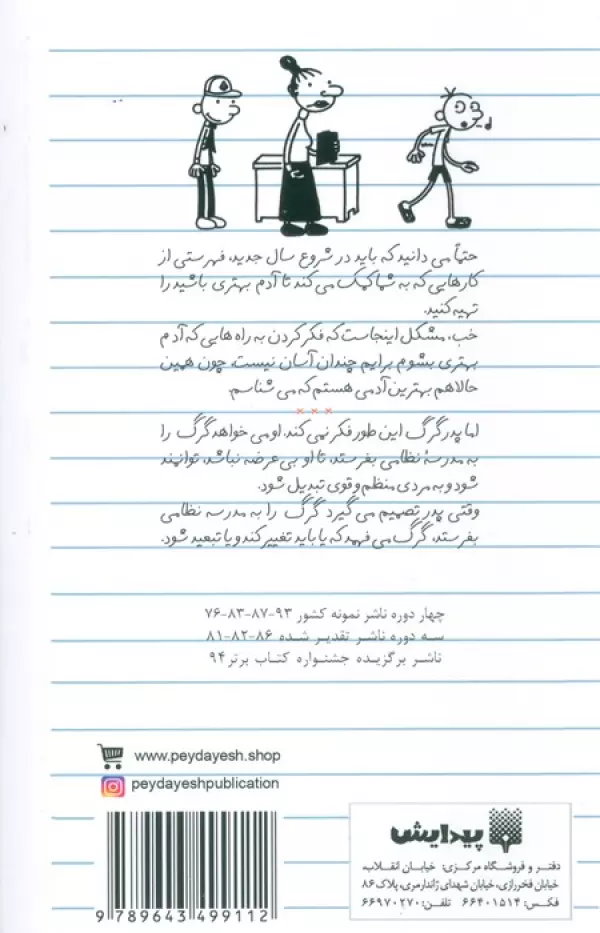 حتماً می دانید که باید در شروع سال جدید، فهرستی از
کارهایی که به شما کمک می کند تا آدم بهتری باشید را
تهیه کنید.
خب، مشکل اینجاست که فکر کردن به راه هایی که آدم
بهتری بشوم برایم چندان آسان نیست، چون همین
حالا هم بهترین آدمی هستم که می شناسم.
× × ×
اما پدر گرگ این طور فکر نمی کند. او می خواهد گرگ را
به مدرسهٔ نظامی بفرستد، تا او بی عرضه نباشد، توانیند
شود و به مردی منظم و قوی تبدیل شود.
وقتی پدر تصمیم می گیرد گرگ را به مدرسه نظامی
بفرستد، گرگ می فهمد که یا باید تغییر کند و یا تبعید شود.
چهار دوره ناشر نمونه کشور ۹۳-۸۷-۸۳-۷۶
سه دوره ناشر تقدیر شده ۸۶-۸۲-۸۱
ناشر برگزیده جشنواره کتاب برتر ۹۴
www.peydayesh.shop
peydayeshpublication
پیدایش
دفتر و فروشگاه مرکزی: خیابان انقلاب،
خیابان فخررازی، خیابان شهدای ژاندارمری، پلاک ۸۶
فکس: ۶۶۴۰۱۵۱۴ تلفن: ۶۶۹۷۰۲۷۰
9 789643 499112